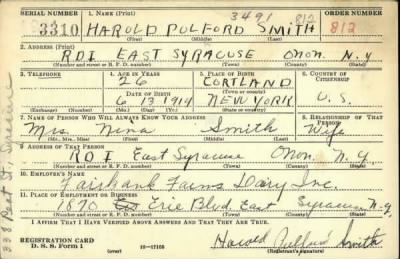 SERIAL NUMBER 1. NAME (Print) ORDER NUMBER
3491 812
3310 HAROLD PULFORD SMITH 812
(First) (Middle) (Last)
2. ADDRESS (Print)
RD1 EAST SYRACUSE ONON. N.Y
(Number and street or R. F. D. number) (Town) (County) (State)
3. TELEPHONE 4. AGE IN YEARS 5. PLACE OF BIRTH 6. COUNTRY OF CITIZENSHIP
26 CORTLAND
DATE OF BIRTH (Town or county)
6 13 1914 NEW YORK U. S.
(Exchange) (Number) (Mo.) (Day) (Yr.) (State or country)
7. NAME OF PERSON WHO WILL ALWAYS KNOW YOUR ADDRESS 8. RELATIONSHIP OF THAT PERSON
Mrs. Nina Smith Wife
(Mr., Mrs., Miss) (First) (Middle) (Last)
9. ADDRESS OF THAT PERSON
RD1 East Syracuse Onon. N.Y.
(Number and street or R. F. D. number) (Town) (County) (State)
10. EMPLOYER'S NAME
Fairbank Farms Dairy Inc.
11. PLACE OF EMPLOYMENT OR BUSINESS
1870 Erie Blvd East Syracuse N.Y
(Number and street or R. F. D. number) (Town) (County) (State)
I AFFIRM THAT I HAVE VERIFIED ABOVE ANSWERS AND THAT THEY ARE TRUE.
REGISTRATION CARD
D. S. S. Form 1 (over) 16—17105 Harold Pulford Smith
(Registrant's signature)
St, Syracuse